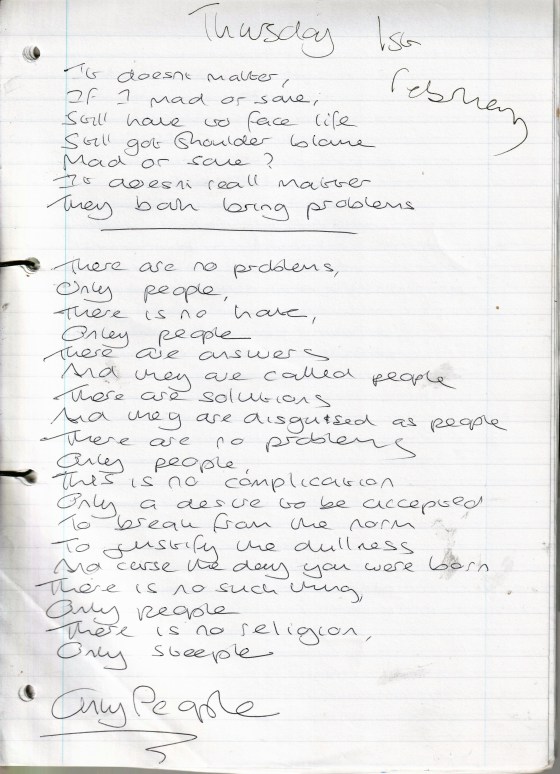 Thursday 1st
February
It doesnt matter,
If I mad or sane,
Still have to face life
Still got shoulder blame
Mad or sane?
It doesnt reall matter
They both bring problems
There are no problems,
Only people,
There is no hate,
Onley people
There are answers
And they are called people
There are solutions
And they are disguised as people
There are no problems
Only people,
This is no complication
Only a desire to be accepted
To break from the norm
To justify the dullness
And curse the day you were born
There is no such thing,
Only people
There is no religion,
Only steeple
Only People